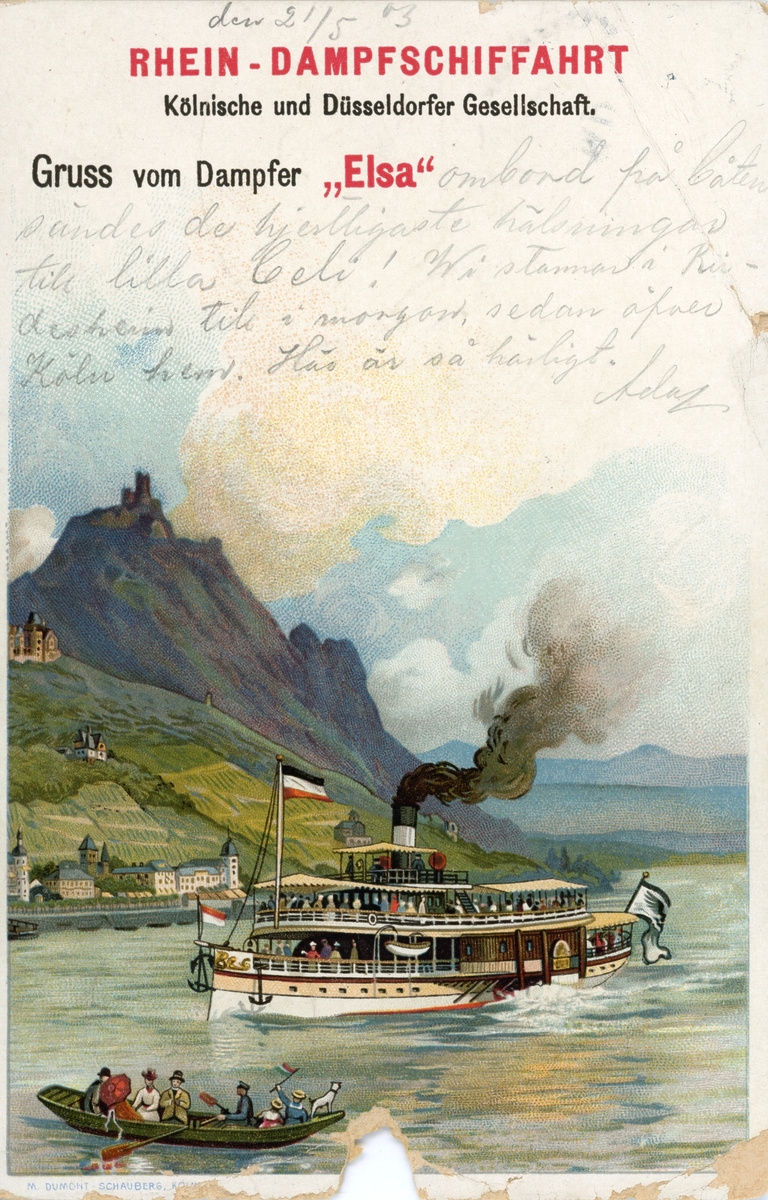 den 21/5 03
RHEIN - DAMPFSCHIFFAHRT
Kölnische und Düsseldorfer Gesellschaft.
Gruss vom Dampfer „Elsa“ ombord på båten
sändes de hjertligaste hälsningar
till lilla Celi! Wi stannar i Rü-
desheim till i morgon, sedan öfver
Köln hem. Här är så härligt.
M. DUMONT-SCHAUBERG, KÖLN